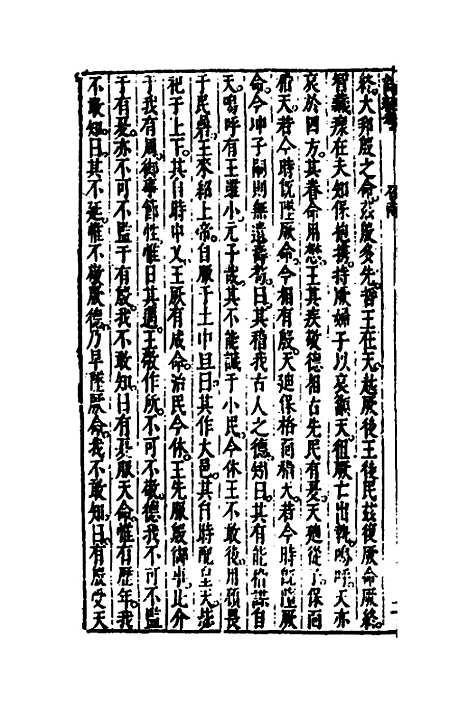 終大邦殷之命茲殷多先哲王在天越厥後王後民茲服厥命厥終
智藏瘝在夫知保抱攜持厥婦子以哀籲天徂厥亡出執嗚呼天亦
哀於四方民其眷命用懋王其疾敬德相古先民有夏天迪從子保面
稽天若今時既墜厥命今相有殷天迪格保面稽天若今時既墜厥
命今沖子嗣則無遺壽耇曰其稽我古人之德矧曰其有能稽謀自
天嗚呼有王雖小元子哉其丕能諴于小民今休王不敢後用顧畏
于民碞王來紹上帝自服于土中旦曰其作大邑其自時配皇天毖
祀于上下其自時中乂王厥有成命治民今休王先服殷御事比介
于我有周御事節性惟日其邁王敬作所不可不敬德我不可不監
于有夏亦不可不監于有殷我不敢知曰有夏服天命惟有歷年我
不敢知曰其不延惟不敬厥德乃早墜厥命我不敢知曰有殷受天